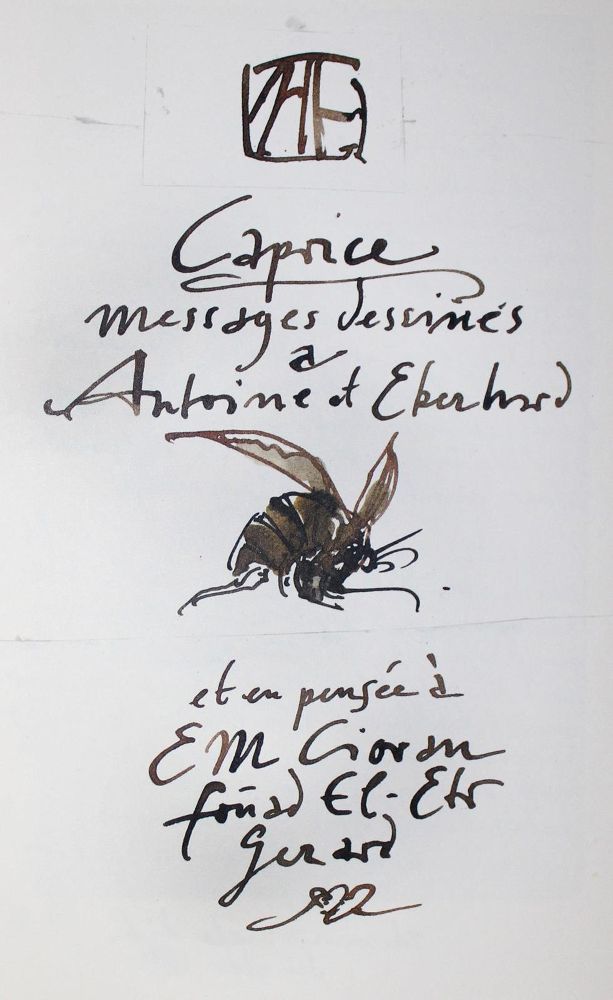 Caprice
messages dessinés
à
Antoine et Eberhard
et en pensée à
E M Cioran
foüad El-Etr
Gerard